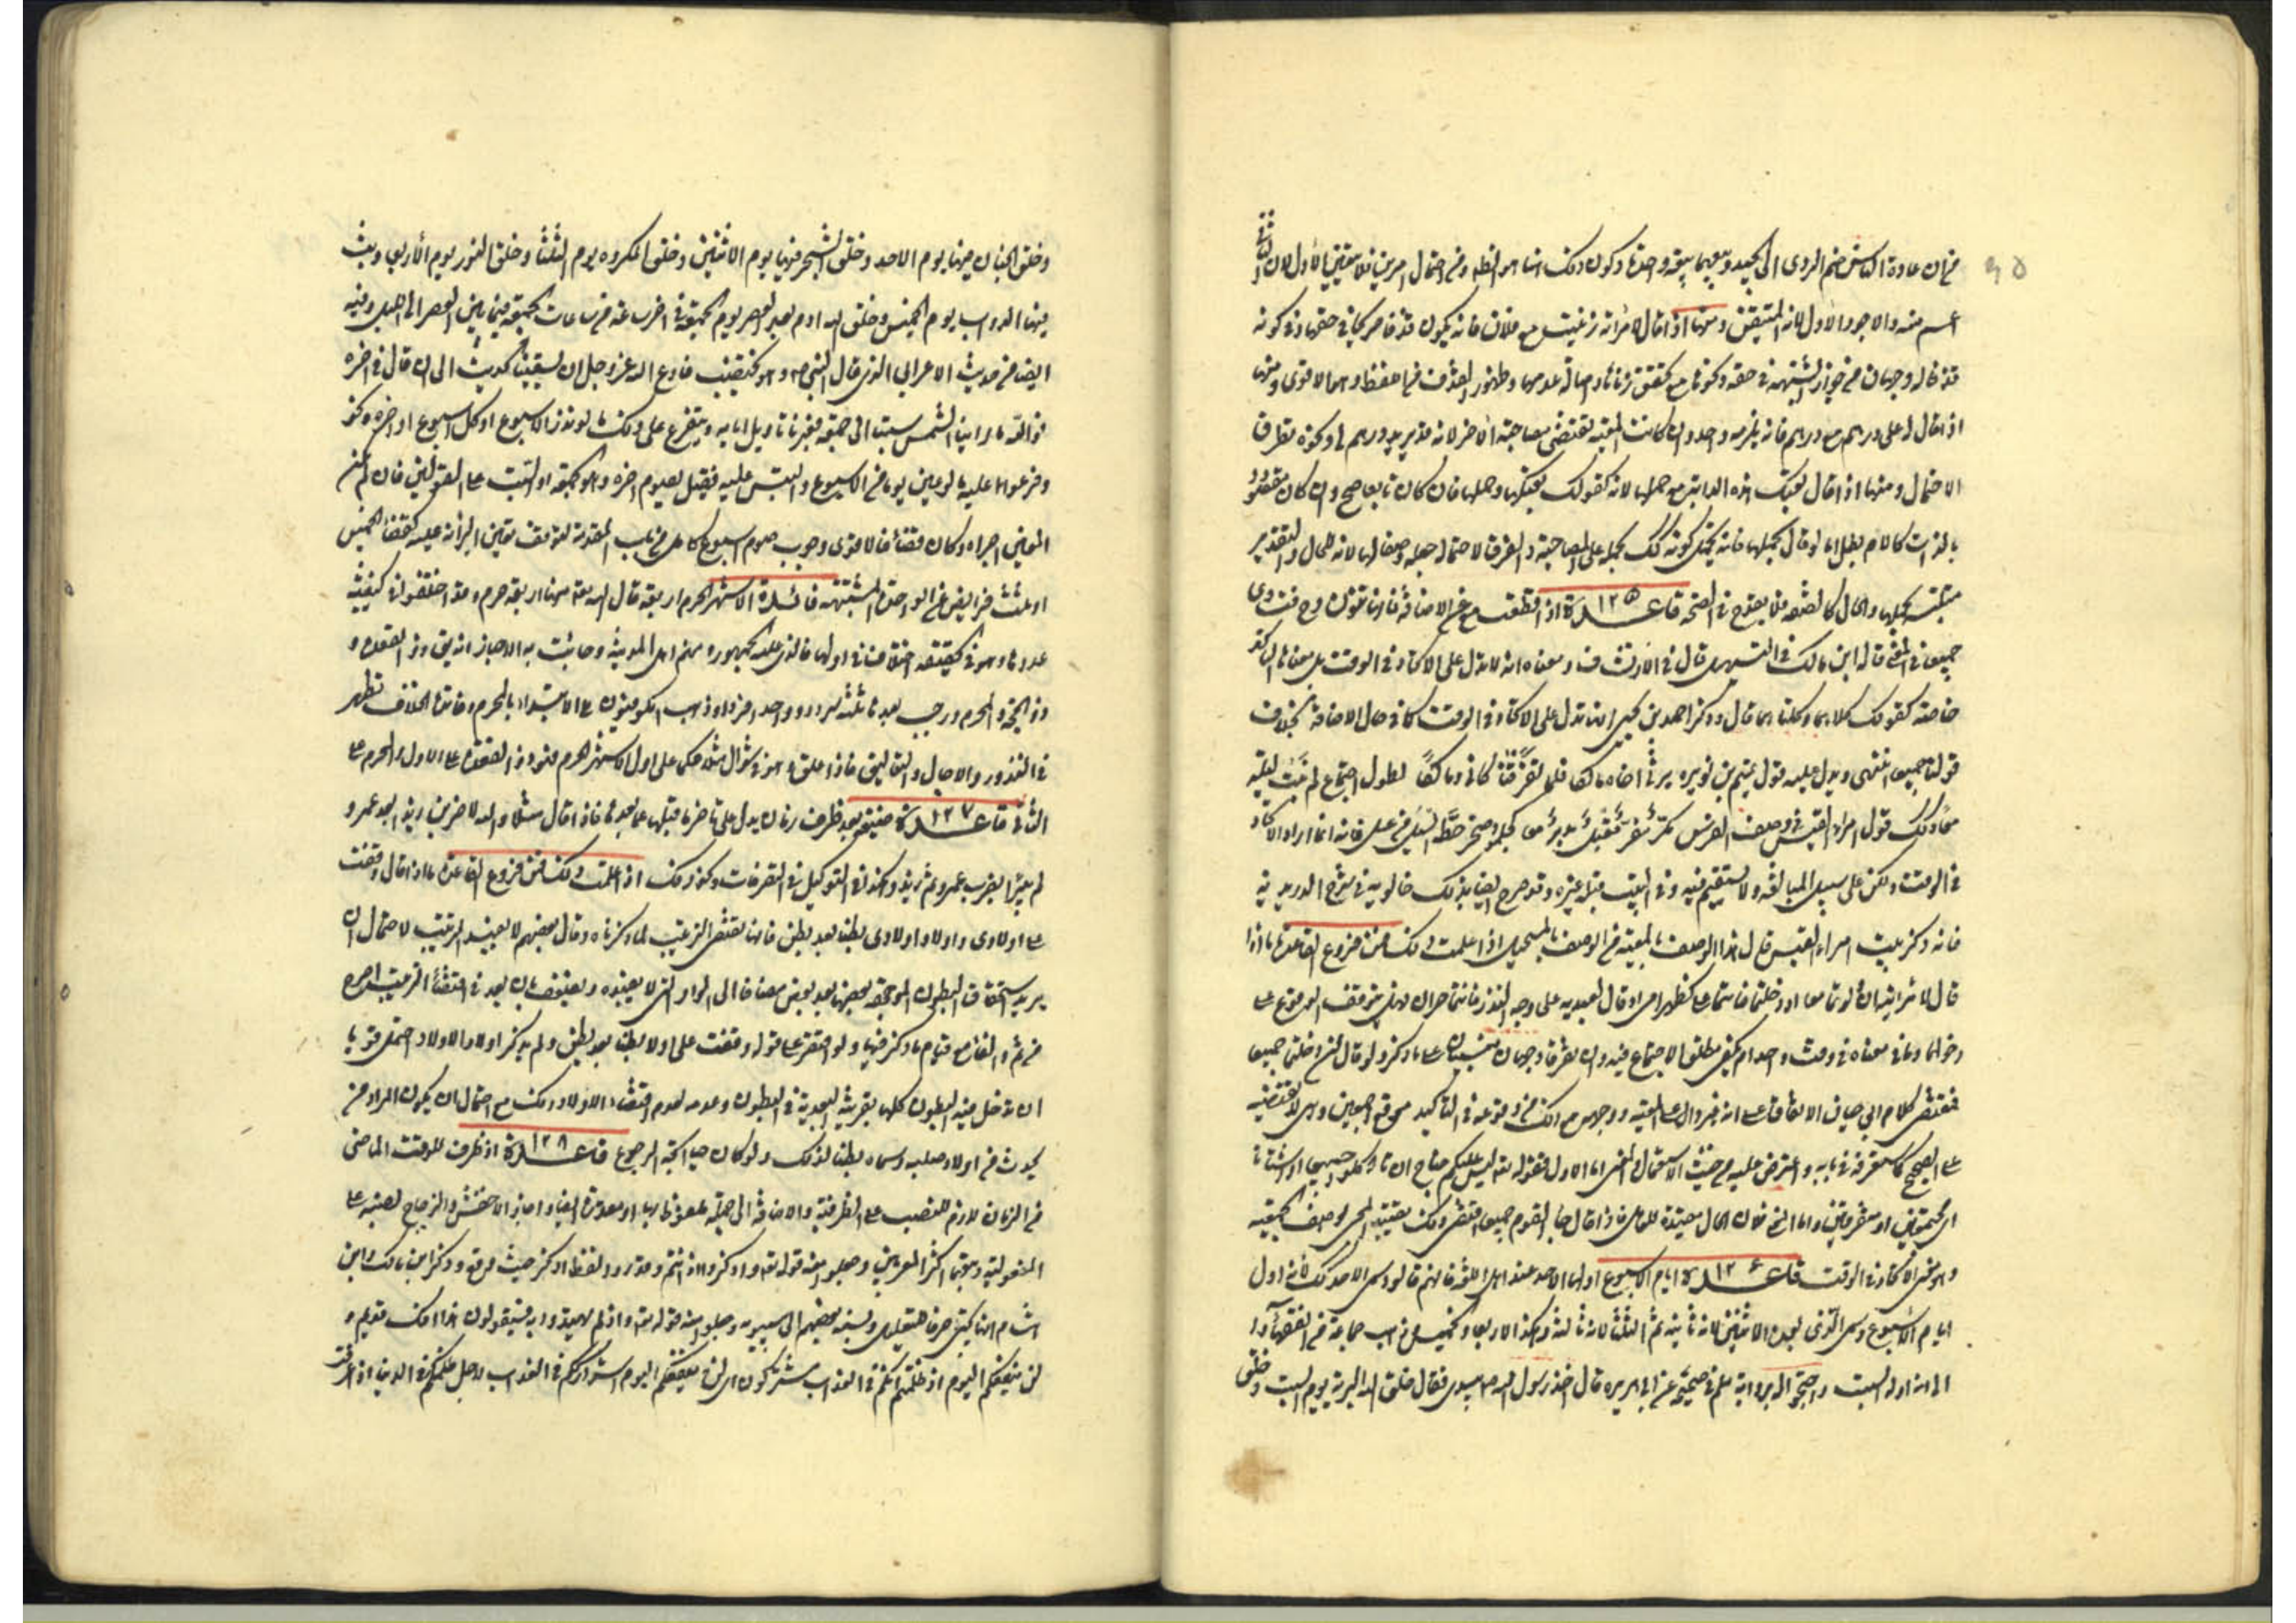 ٩٥
من ان عادة الناس ضم الردى الى الجيد وبيعهما بيعة واحدة وكون ذلك انما هو الظهر ومن احتمال الامرين فلا يتعين الاول لان الثانى
اعم منه والاجود الاول لانه المتيقن ومنها اذا قال لامرأته زنيت مع فلان فانه يكون قذفا صريحا في حقها وفي كونه
قذفا له وجهان من جواز الشبهة في حقه وكونها مع تحقق زناها واصالة عدمها وظهور القذف من اللفظ وهو الاقوى ومنها
اذا قال له على درهم مع درهم فانه يلزمه واحد وان كانت المعية تقتضى مصاحبة الاخر لانه قد يريد مع درهم لى ونحوه لطرق
الاحتمال ومنها اذا قال بعتك هذه الدابة مع حملها لانه كقولك بعتكها وحملها فان كان تابعا صح وان كان مقصودا
بالذات كالام بطل اما لو قال بحملها فانه يحتمل كونه كك لحمله على المصاحبة والفرق لاحتمال جعله وصفا لها لانه للحال والتقدير
متلبسة بحملها والحال كالصفة فلا يقدح في الصحة قاعدة ١٢٥ اذا قطعت مع عن الاضافة فانها تنون وح فتساوى
جميعا في المعنى قاله ابن مالك في التسهيل قال في الارتشاف ومعناه انه لا تدل على الاتحاد في الوقت بل معناها التأكيد
خاصة كقولك كلاهما وكلتاهما قال وذكر احمد بن يحيى انها تدل على الاتحاد في الوقت كما في حال الاضافة بخلاف
قولنا جميعا انتهى ويدل عليه قول متمم بن نويره يرثى اخاه مالكا فلما تفرقنا كانى ومالكا لطول اجتماع لم نبت ليلة
معا وكك قول امرء القيس في وصف الفرس مكر مفر مقبل مدبر معا كجلمود صخر حطه السيل من عل فانه انما اراد الاتحاد
في الوقت ولكن على سبيل المبالغة ولا يستقيم فيه وفي البيت قبله غيره وقد صرح ايضا بذلك خالويه في شرح الدريدية
فانه ذكر بيت امرء القيس قال هذا الوصف بالمعية من الوصف بالمستحيل اذا علمت ذلك فمن فروع القاعدة ما اذا
قال لامرأتيه ان ولدتما معا او دخلتما فانتما على كظهر امى او قال لعبديه على وجه النذر فانتما حران فهل يتوقف الوقوع على
دخولهما وما في معناه في وقت واحد ام يكفى مطلق الاجتماع فيه وان تفرقا وجهان مبنيان على ما ذكر ولو قال ان دخلتما جميعا
فمقتضى كلام ابى حيان الاتفاق على انه غير دال على المعية ووجهه مع ذلك من وقوعه في التأكيد موقع اجمعين وهى لا تقتضيه
على الصحيح كما ستعرفه في بابه واعترض عليه من حيث الاستعمال والمعنى اما الاول فقوله تع ليس عليكم جناح ان تأكلوا جميعا او اشتاتا
اى مجتمعين او متفرقين واما الثانى فلان الحال مقيدة للعامل فاذا قال جاء القوم جميعا اقتضى ذلك تقييد المجئ بوصف الجمعية
وهو معنى الاتحاد في الوقت قاعدة ١٢٦ ايام الاسبوع اولها الاحد عند اهل اللغة فانهم قالوا سمى الاحد كك لانه اول
ايام الاسبوع وسمى الذى بعده الاثنين لانه ثانيه ثم الثلثا لانه ثالثه وهكذا الاربعا والخميس وذهب جماعة من الفقهاء
الى انه اوله السبت واحتج له برواية مسلم في صحيحه عن ابى هريره قال اخذ رسول الله ص بيدى فقال خلق الله البرية يوم السبت وخلق
وخلق الجبال فيها يوم الاحد وخلق الشجر فيها يوم الاثنين وخلق المكروه يوم الثلثا وخلق النور يوم الاربعا وبث
فيها الدواب يوم الخميس وخلق الله ادم بعد العصر يوم الجمعة في اخر ساعة من ساعات الجمعة فيما بين العصر الى الليل وفيه
ايضا من حديث الاعرابى الذى قال النبى ص وهو يخطب فادع الله عز وجل ان يسقينا الحديث الى ان قال في اخره
فوالله ما راينا الشمس سبتا اى جمعة فعبرنا تاويل ايامه ويتفرع على ذلك ما لو نذر الاسبوع او كل اسبوع او اخره ونحو
وفرعوا عليه ما لو عين يوما من الاسبوع والتبس عليه فقيل يصوم اخره وهو الجمعة او السبت على القولين فان لم يكن
المعين اجزاه وكان قضاء فالاقوى وجوب صوم اسبوع كامل من باب المقدمة لتوقف يقين البراءة عليه كقضاء الخمس
او ثلث فرايض عن الواحدة المشتبهة فائدة الاشهر الحرم اربعة قال الله تعا منها اربعة حرم وقد اختلفوا في كيفية
عددها وهو في الحقيقة اختلاف في اولها فالذى عليه الجمهور ومنهم اهل المدينة وجائت به الاخبار انه يق ذو القعدة و
ذو الحجة والمحرم ورجب بعدها ثلثة سرد وواحد فرد وذهب الكوفيون الى الابتداء بالمحرم وفائدة الخلاف تظهر
في النذور والاجال والتعاليق فاذا علق وهو في شوال مثلا حكما على اول الاشهر الحرم فهو ذو القعدة على الاول والمحرم على
الثانى قاعدة ١٢٧ صيغة بعد ظرف زمان يدل على تاخر ما قبلها عما بعدها فاذا قال مثلا والله لاضربن زيدا بعد عمرو
لم يبر الا بضرب عمرو ثم زيد وكذا في التوكيل في التصرفات ونحو ذلك اذا علمت ذلك فمن فروع القاعدة ما اذا قال وقفت
على اولادى واولاد اولادى بطنا بعد بطن فانها تقتضى الترتيب لما ذكرناه وقال بعضهم لا يفيد الترتيب لاحتمال ان
يريد استحقاق البطون الموجودة بعضها بعد بعض مضافا الى الواو التى لا يفيده ويضعف بان بعد في اقتضاء الترتيب اصرح
من ثم والفاء مع قيام ما ذكر فيها ولو اقتصر على قوله وقفت على اولادى بطنا بعد بطن ولم يذكر اولاد الاولاد احتمل قويا
ان تدخل فيه البطون كلها بقرينة البعدية في البطون وعدمه لعدم اقتضاء الاولاد ذلك مع احتمال ان يكون المراد من
يحدث من اولاد صلبه وسماه بطنا لذلك ولو كان حيا اتجه الرجوع قاعدة ١٢٨ اذ ظرف للوقت الماضى
من الزمان لازم للنصب على الظرفية والاضافة الى جملة ملفوظ بها او مقدرة ايضا واجاز الاخفش والزجاج نصبه على
المفعولية وتبعهما اكثر المعربين وجعلوا منه قوله تع واذكروا اذ انتم وقدروا لفظ اذكر حيث وقع وذكر ابن مالك وابن
هشام انها يجئ حرفا للتعليل ونسبه بعضهم الى سيبويه وجعلوا منه قوله تع واذ لم يهتدوا به فسيقولون هذا افك قديم و
لن ينفعكم اليوم اذ ظلمتم انكم في العذاب مشتركون اى لن ينفعكم اليوم اشتراككم في العذاب لاجل ظلمكم في الدنيا